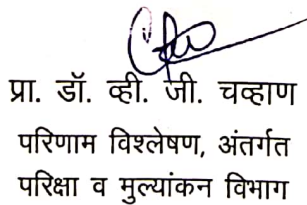 प्रा. डॉ. व्ही. जी. चव्हाण
परिणाम विश्लेषण, अंतर्गत
परिक्षा व मुल्यांकन विभाग